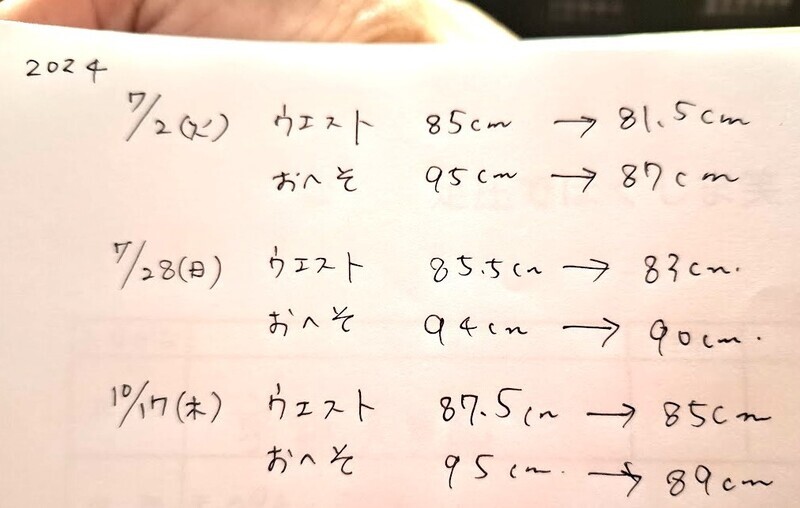 2024
7/2(火) ウエスト 85cm → 81.5cm
おへそ 95cm → 87cm
7/28(日) ウエスト 85.5cm → 83cm.
おへそ 94cm → 90cm.
10/17(木) ウエスト 87.5cm → 85cm
おへそ 95cm. → 89cm